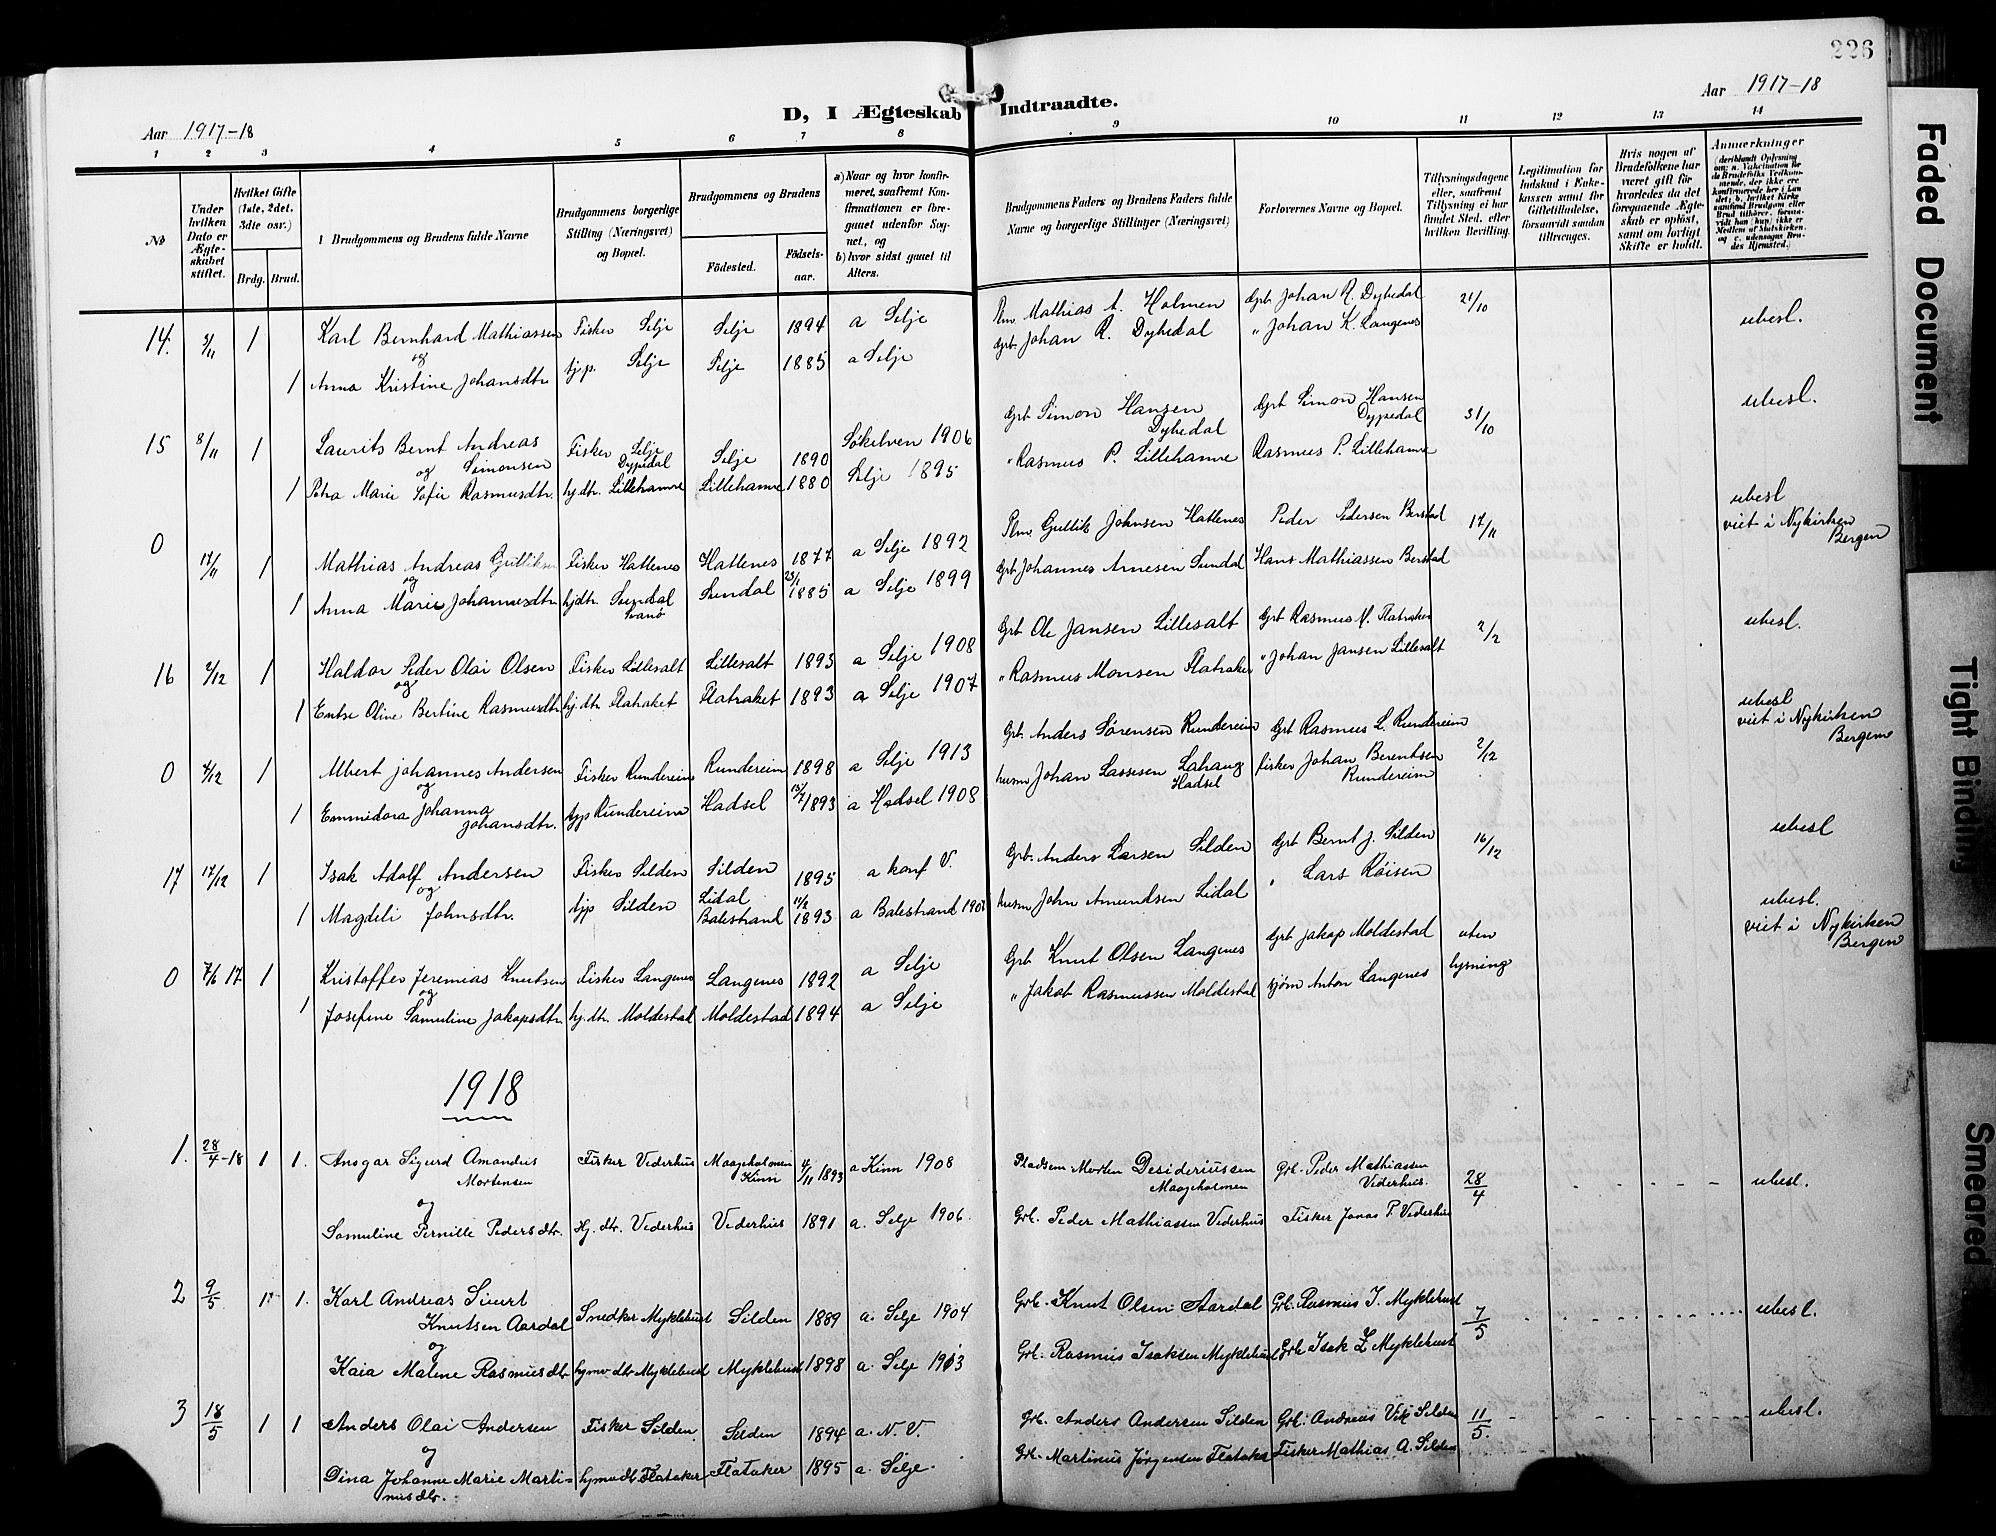 226
Aar 1917-18
D, I Ægteskab Indtraadte.
Aar 1917-18
1 2 3 4 5 6 7 8 9 10 11 12 13 14
No
Under hvilken Dato er Ægteskabet stiftet.
Hvilket Gifte (1ste, 2det, 3dte osv.)
Brdg. Brud.
Brudgommens og Brudens fulde Navne
Brudgommens borgerlige Stilling (Næringsvei) og Bopæl.
Brudgommens og Brudens
Födested.
Födselsaar.
a) Naar og hvor konfirmeret, saafremt Konfirmationen er foregaaet udenfor Sognet, og
b) hvor sidst gaaet til Alters.
Brudgommens Faders og Brudens Faders fulde Navne og borgerlige Stillinger (Næringsvei)
Forlovernes Navne og Bopæl.
Tillysningsdagene eller, saafremt Tillysning ei har fundet Sted, efter hvilken Bevilling.
Legitimation for Indskud i Enkekassen samt for Giftetilladelse, forsaavidt saadan tiltrænges.
Hvis nogen af Brudefolkene har været gift før hvorledes da det foregaaende Ægteskab er opløst, samt om lovligt Skifte er holdt.
Anmerkninger
14. 3/11 1 Karl Bernhard Mathiassen Fisker Selje Selje 1894 a Selje Plm Mathias A. Holmen Grb. Johan R. Dybedal 21/10 ubesl.
og
1 Anna Kristine Johansdtr tjp. Selje Selje 1885 a Selje Grb. Johan R. Dybedal " Johan K. Langenes
15 8/11 1 Laurits Bernt Andreas Simonsen Fisker Selje Dypedal Selje 1890 Søkelven 1906 Grb Simon Hansen Dybedal Grb Simon Hansen Dypedal 31/10 ubesl.
og
1 Petra Marie Sofie Rasmusdtr. hj.dtr. Lillehamre Lillehamre 1880 Selje 1895 " Rasmus P. Lillehamre Rasmus P. Lillehamre
0 17/11 1 Mathias Andreas Gulliksen Fisker Hattenes Hattenes 1877 a Selje 1892 Plm. Gullik Johnsen Hattenes Peder Pedersen Berstad 17/11 ubesl viet i Nykirken Bergen
og
1 Anna Marie Johannesdtr hjdtr. Sundal Sundal 23/1 1885 a Selje 1899 Grb Johannes Arnesen Sundal Hans Mathiassen Berstad
16 2/12 1 Haldor Peder Olai Olsen Fisker Lillesalt Lillesalt 1893 a Selje 1908 Grb Ole Jansen Lillesalt Grb Rasmus M. Flatraket 2/2 ubesl.
og
1 Oline Bertine Rasmusdtr hj.dtr Flatraket Flatraket 1893 a Selje 1907 " Rasmus Monsen Flatraket " Johan Jansen Lillesalt
0 4/12 1 Albert Johannes Andersen Fisker Rundereim Rundereim 1898 a Selje 1913 Grb. Anders Sørensen Rundereim Grb Rasmus L. Rundereim 2/12 ubesl viet i Nykirken Bergen
og
1 Emmidora Johanna Johansdtr. tjp Rundereim Hadsel 13/7 1893 a Hadsel 1908 husm Johan Lassesen Hadsel fisker Johan Berentsen Rundereim
17 17/12 1 Isak Adolf Andersen Fisker Silden Silden 1895 a konf V. Grb. Anders Larsen Silden Grb Bernt J. Silden 16/12 ubesl
og
1 Magdeli Johnsdtr. tjp Silden Lidal Balestrand 11/2 1893 a Balestrand husm John Amundsen Lidal " Lars Røisen
0 7/6 17 1 Kristoffer Jeremias Knutsen Fisker Langenes Langenes 1892 a Selje Grb Knut Olsen Langenes Grb Jakop Moldestad uten lysning ubesl. viet i Nykirken Bergen
og
1 Josefine Samuline Jakopsdtr. hj.dtr. Moldestad Moldestad 1894 a Selje " Jakob Rasmussen Moldestad sjøm Anton Langenes
1918
1. 28/4-18 1 1. Ansgar Sigurd Amandus Mortensen Fisker Vederhus Maageholmen Kinn 4/11 1893 a Kinn 1908 Pladsem Morten Desideriussen Maageholmen Grb. Peder Mathiassen Vederhus. 28/4 ubesl.
og
Samuline Pernille Pedersdtr. Hj. dtr. Vederhus Vederhus 1891 a. Selje 1906. Grb. Peder Mathiassen Vederhus Fisker Jonas P. Vederhus
2 9/5 1 1. Karl Andreas Sivert Knutsen Aardal Snedker Myklebust Silden 1889 a. Selje 1904 Grb. Knut Olsen Aardal Grb. Rasmus I. Myklebust 7/5 ubesl.
og
Kaia Malene Rasmusdtr hjmv dtr Myklebust Myklebust 1898 a. Selje 1913 Grb. Rasmus Isaksen Myklebust Grb Isak Z Myklebust
3 18/5 1 1 Anders Olai Andersen Fisker Silden Silden 1894 a. N. V. Grb. Anders Andersen Silden Grb. Andreas Vik Silden 11/5. ubesl.
og
Dina Johanne Marie Martinusdtr. hjmv dtr Flataker Flataker 1895 a. Selje. Grb. Martinus Jørgensen Flataker Fisker Mathias A. Silden
Faded Document
Tight Binding
Smeared